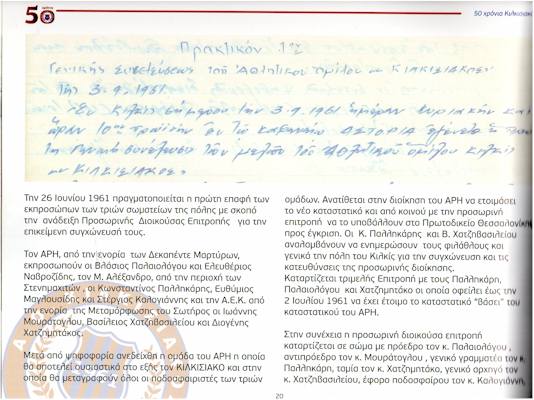 50 χρόνια
50 χρόνια Κιλκισιακ
Πρακτικόν 1ης
Γενικής Συνελεύσεως τού Αθλητικού Ομίλου ΚΙΛΚΙΣΙΑΚΟΣ
Της 3.9.1961
Εν Κιλκίς σήμερον την 3.9.1961 ημέραν Κυριακήν και
ώραν 10ην πρωϊνήν εν τω καφενείω ΑΣΤΟΡΙΑ εγένετο
Γενική συνέλευσις των μελών τού Αθλητικού ομίλου Κιλκίς
ΚΙΛΚΙΣΙΑΚΟΣ
Την 26 Ιουνίου 1961 πραγματοποιείται η πρώτη επαφή των
εκπροσώπων των τριών σωματείων της πόλης με σκοπό
την ανάδειξη Προσωρινής Διοικούσας Επιτροπής για την
επικείμενη συγχώνευσή τους.
Τον ΑΡΗ, από την ενορία των Δεκαπέντε Μαρτύρων,
εκπροσωπούν οι Βλάσιος Παλαιολόγου και Ελευθέριος
Ναβροζίδης, τον Μ. Αλέξανδρο, από την περιοχή των
Στενημαχιτών οι Κωνσταντίνος Παλληκάρης, Ευθύμιος
Μαγιουσίδης και Στέργιος Καλογιάννης και την Α.Ε.Κ. από
την ενορία της Μεταμόρφωσης του Σωτήρος οι Ιωάννης
Μουράτογλου, Βασίλειος Χατζηβασιλείου και Διογένης
Χατζημπτάκος.
Μετά από ψηφοφορία ανεδείχθη η ομάδα του ΑΡΗ η οποία
θα αποτελεί ουσιαστικά στο εξής τον ΚΙΛΚΙΣΙΑΚΟ και στην
οποία θα μεταγραφούν όλοι οι ποδοσφαιριστές των τριών
ομάδων. Ανατίθεται στην διοίκηση του ΑΡΗ να ετοιμάσει
το νέο καταστατικό και από κοινού με την προσωρινή
επιτροπή να το υποβάλλουν στο Πρωτοδικείο Θεσσαλονίκης
προς έγκριση. Οι Κ. Παλληκάρης και Β. Χατζηβασιλείου
αναλαμβάνουν να ενημερώσουν τους φιλάθλους και
γενικά την πόλη του Κιλκίς για την συγχώνευση και τις
κατευθύνσεις της προσωρινής διοίκησης.
Καταρτίζεται τριμελής Επιτροπή με τους Παλληκάρη,
Παλαιολόγου και Χατζημπτάκο οι οποίοι οφείλει έως την
2 Ιουλίου 1961 να έχει έτοιμο το καταστατικό "βάσει" του
καταστατικού του ΑΡΗ.
Στην συνέχεια η προσωρινή διοικούσα επιτροπή
καταρτίζεται σε σώμα με πρόεδρο τον κ. Παλαιολόγου ,
αντιπρόεδρο τον κ. Μουράτογλου , γενικό γραμματέα τον κ.
Παλληκάρη, ταμία τον κ. Χατζημπτάκο, γενικό αρχηγό τον
κ. Χατζηβασιλείου, έφορο ποδοσφαίρου τον κ. Καλογιάννη,
20